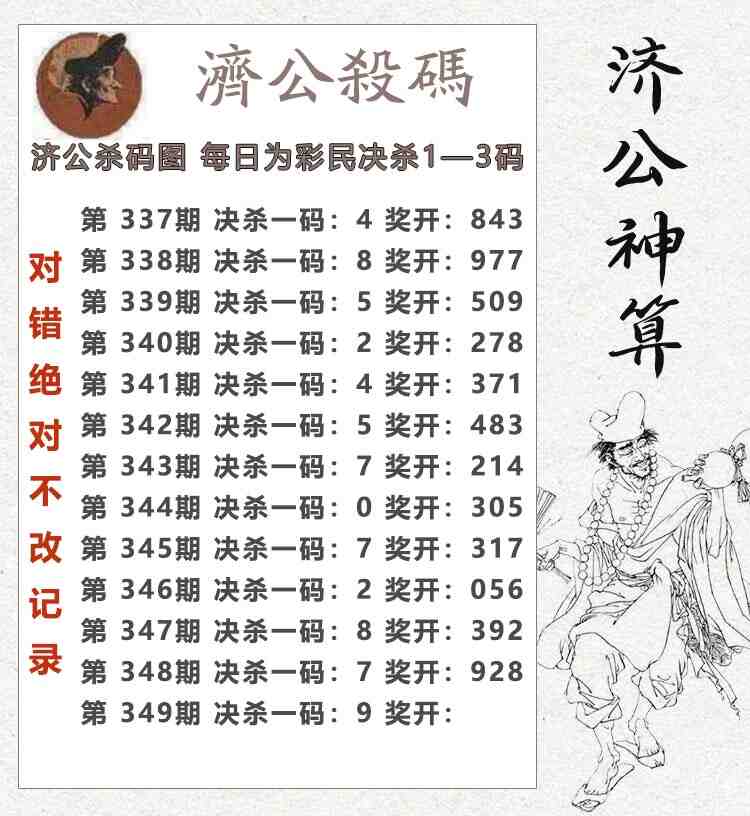 濟公殺碼
济公杀码图 每日为彩民决杀1—3码
第 337期 决杀一码：4 奖开：843
第 338期 决杀一码：8 奖开：977
第 339期 决杀一码：5 奖开：509
第 340期 决杀一码：2 奖开：278
第 341期 决杀一码：4 奖开：371
第 342期 决杀一码：5 奖开：483
第 343期 决杀一码：7 奖开：214
第 344期 决杀一码：0 奖开：305
第 345期 决杀一码：7 奖开：317
第 346期 决杀一码：2 奖开：056
第 347期 决杀一码：8 奖开：392
第 348期 决杀一码：7 奖开：928
第 349期 决杀一码：9 奖开：
对错绝对不改记录
济公神算